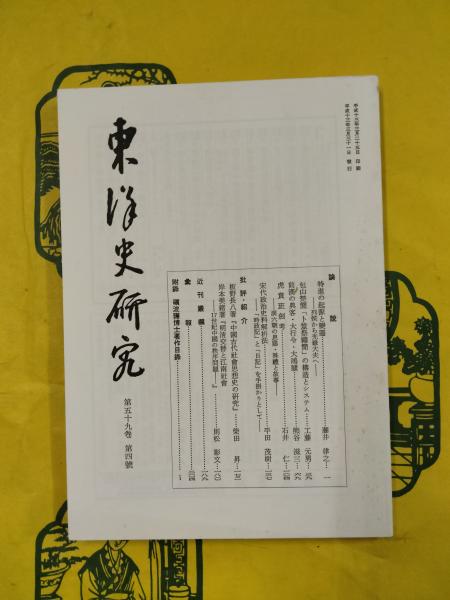 平成十三年三月二十五日 印刷
平成十三年三月三十一日 發行
東洋史研究
第五十九卷 第四號
論說
特進の起源と變遷……藤井 律之…一
――列侯から光祿大夫へ――
包山楚簡「卜筮祭禱簡」の構造とシステム……工藤 元男…
前漢の典客・大行令・大鴻臚……熊谷 滋三…
虎賁班劍考……石井 仁…
――漢六朝の恩賜・殊禮と故事――
宋代政治史料解析法……平田 茂樹…
――「時政記」と「日記」を手掛かりとして――
批評・紹介
板野長八著『中國古代社會思想史の研究』……柴田 昇…
岸本美緒著『明清交替と江南社會
――17世紀中國の秩序問題――』……則松 彰文…
近刊叢欄
彙報
附錄 礪波護博士著作目錄……1